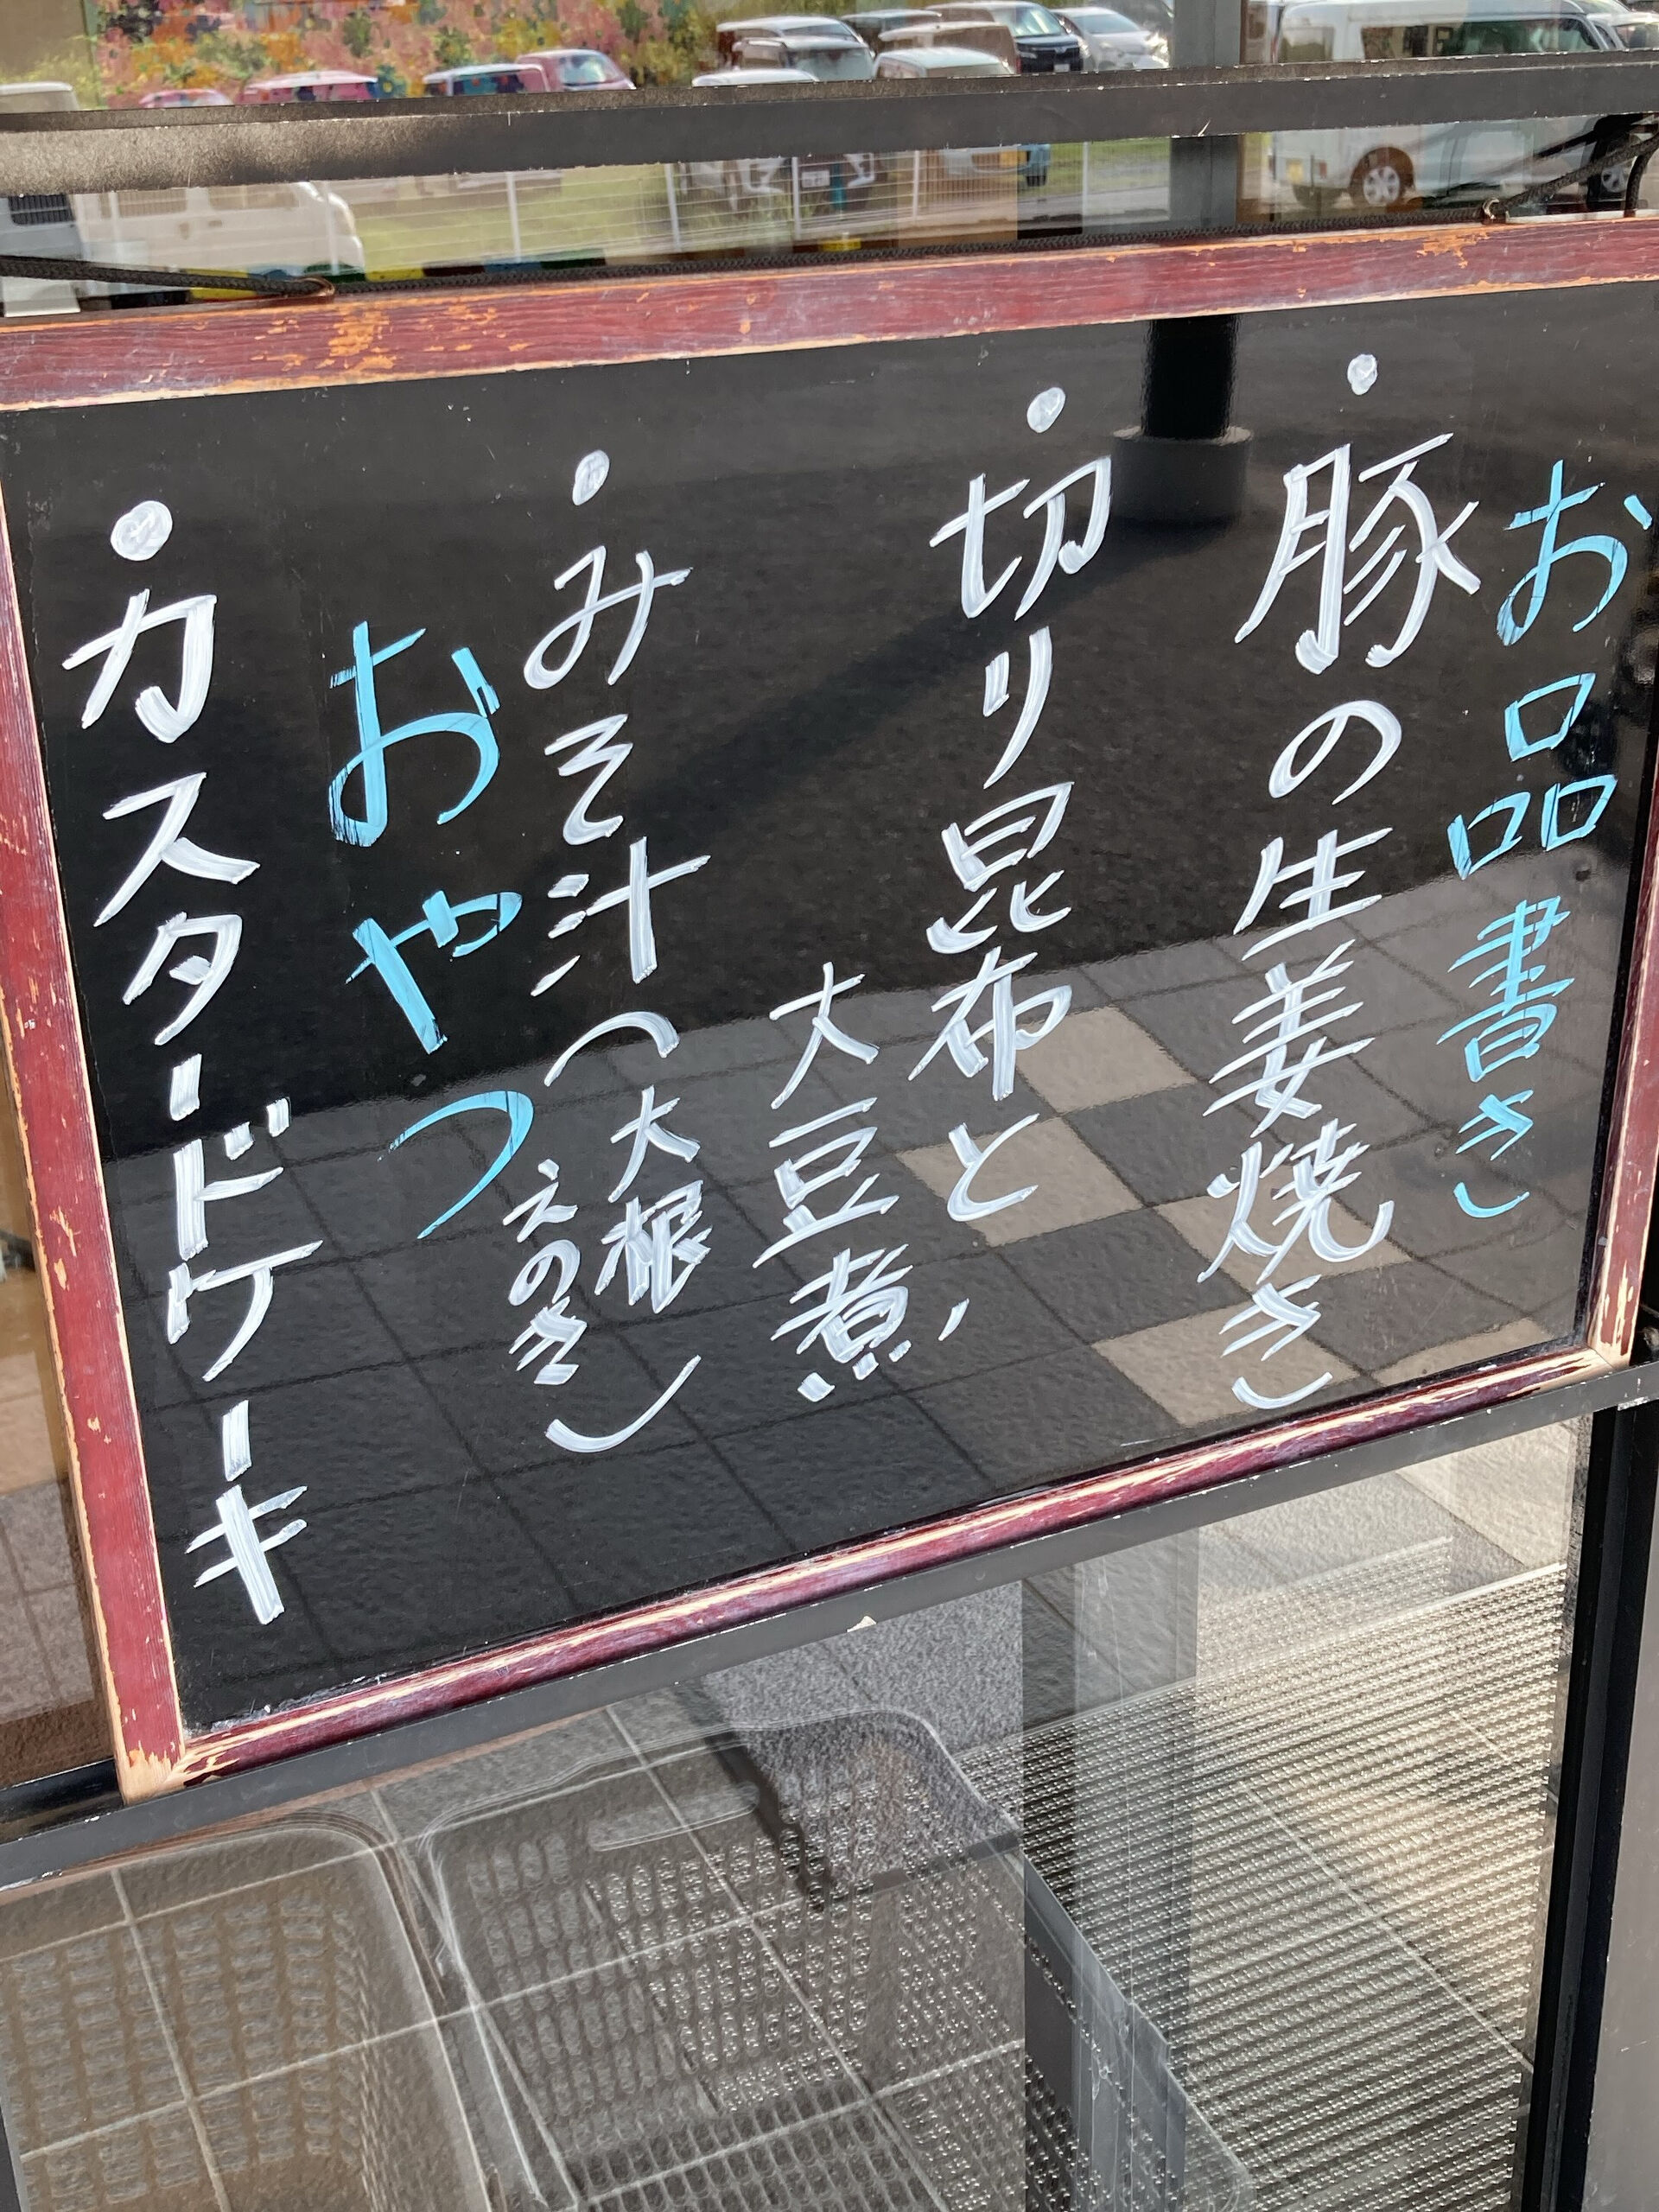 お品書き
・豚の生姜焼き
・切り昆布と
大豆煮
・みそ汁(大根
えのき)
おやつ
・カスタードケーキ